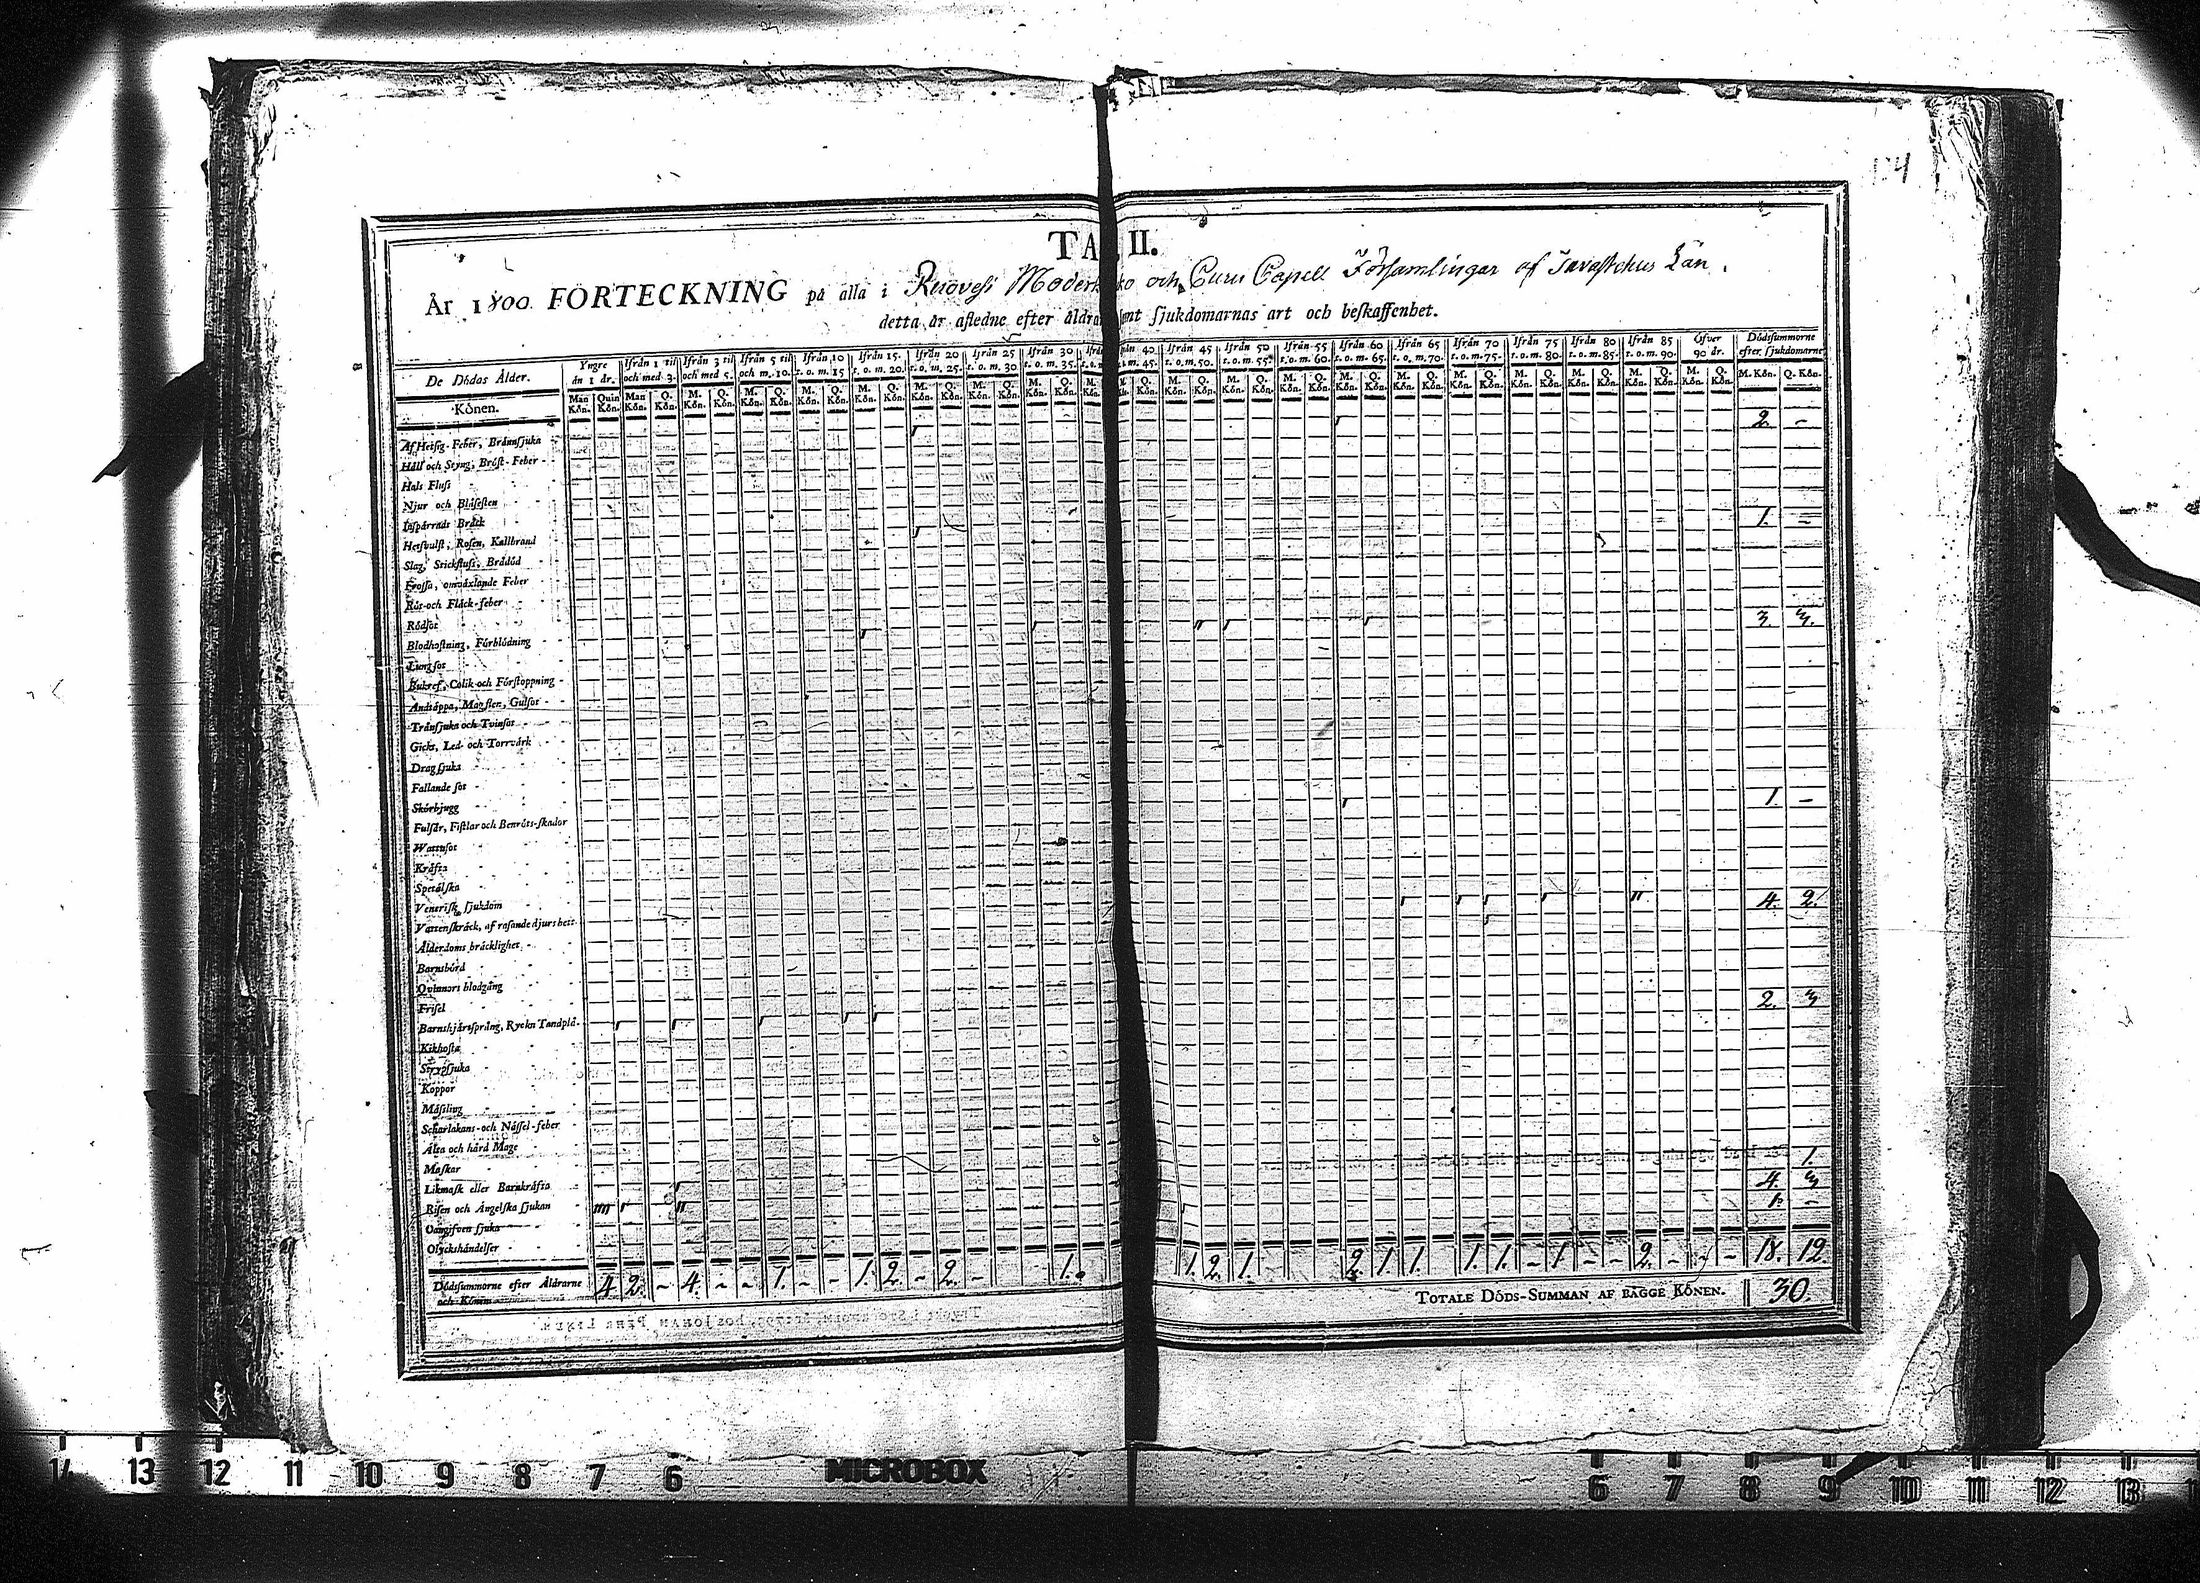 134
TAB II.
År 1800 FÖRTECKNING på alla i Ruovesi Moderkyrko och Curu Capell Församlingar af Tavastehus Län.
detta år afledne efter åldrar samt sjukdomarnas art och beskaffenhet.
De Dödas Ålder. Yngre än 1 år. Ifrån 1 til och med 3. Ifrån 3 til och med 5. Ifrån 5 til och m. 10. Ifrån 10 t. o. m. 15 Ifrån 15. t. o. m. 20. Ifrån 20 t. o. m. 25. Ifrån 25 t. o. m. 30. Ifrån 30 t. o. m. 35. Ifrån 40 t. o. m. 45. Ifrån 45 t. o. m. 50. Ifrån 50 t. o. m. 55. Ifrån 55 t. o. m. 60. Ifrån 60 t. o. m. 65. Ifrån 65 t. o. m. 70. Ifrån 70 t. o. m. 75. Ifrån 75 t. o. m. 80. Ifrån 80 t. o. m. 85. Ifrån 85 t. o. m. 90. Öfver 90 år. Dödssummorne efter sjukdomarne
Könen. Man Kön. Quin Kön. Man Kön. Q. Kön. M. Kön. Q. Kön.
Af Hetsig-Feber, Brännsjuka 2. -
Håll och Styng, Bröst-Feber
Hals Fluss
Njur och Blåsesten
Inspärradt Bråck
Hetsvulst, Rosen, Kallbrand 1. -
Slag, Stickfluss, Brådöd
Frossa, omväxlande Feber
Röt-och Fläck-feber
Rödsot
Blodhostning, Förblödning 3. 3.
Lungsot
Bukref, Colik och Förstoppning
Andtäppa, Magsten, Gulsot
Trånsjuka och Tvinsot
Gickt, Led- och Torrvärk
Dragsjuka
Fallande sot
Skörbjugg
Fulsår, Fistlar och Benröts-skador 1. -
Wattusot
Kräfta
Spetälska
Venerisk sjukdom
Vattenskräck, af rasande djurs bett
Ålderdoms bräcklighet 4. 2.
Barnsbörd
Qvinnors blodgång
Frisel
Barnshjärtsprång, Ryckn Tandplå. 2. 3
Kikhosta
Strypsjuka
Koppor
Mässling
Scharlakans-och Nässel-feber
Älta och hård Mage
Maskar
Likmask eller Barnkräfta 1.
Risen och Ängelska sjukan 4. 3
Oangifven sjuka 1. -
Olyckshändelser
Dödssummorne efter Åldrarne och Könen 4 2. - 4. - - 1. - - 1. 2. - 2. - 1. 1. 2. 1. 2. 1. 1. 1. 1. - 1 - - 2. - - 18. 12.
TOTALE DÖDS-SUMMAN AF BÄGGE KÖNEN. 30.
14 13 12 11 10 9 8 7 6 MICROBOX 6 7 8 9 10 11 12 13